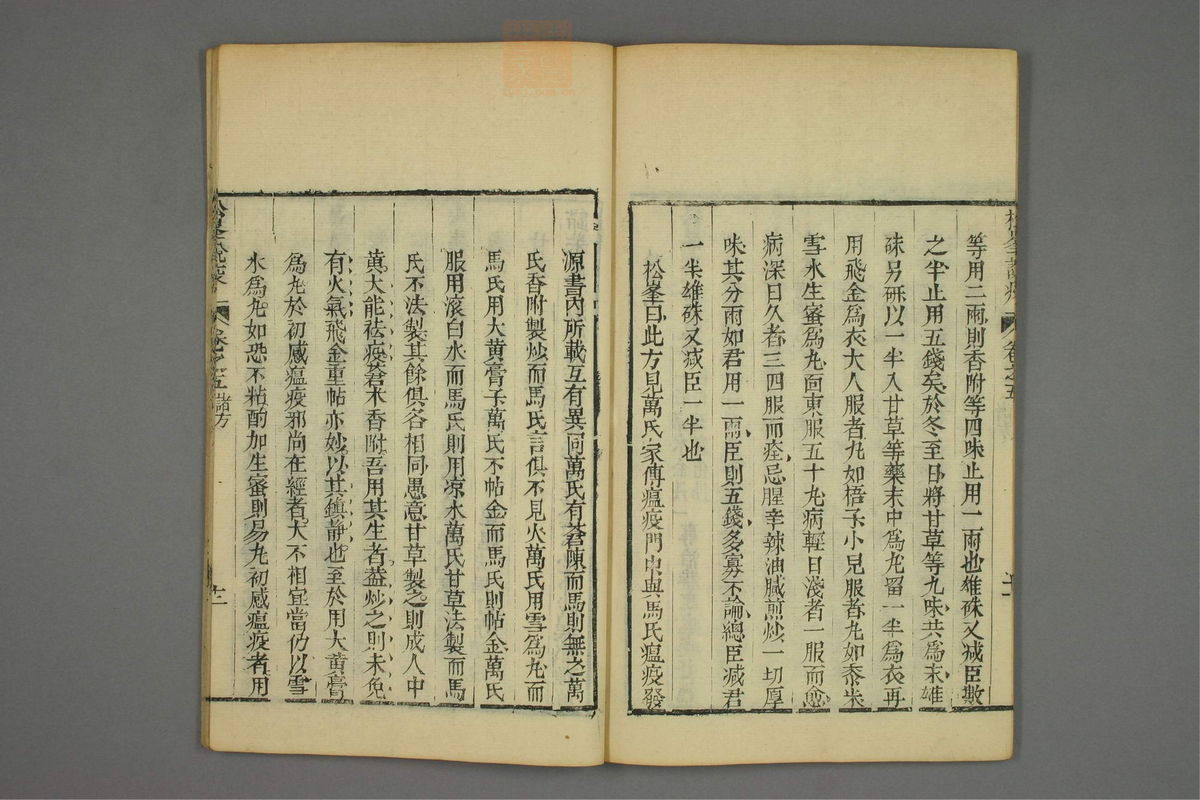 等用二兩則香附等四味止用一兩也雄硃又减臣數
之半止用五錢矣於冬至日將甘草等九味共為末雄
硃另硏以一半入甘草等藥末中為丸留一半為衣再
用飛金為衣大人服者丸如梧子小兒服者丸如黍米
雪水生蜜為丸面東服五十丸病輕日淺者一服而愈
病深日久者三四服而痊忌腥辛辣油膩煎炒一切厚
味其分兩如君用一兩臣則五錢多寡不論總臣减君
一半雄硃又减臣一半也
松峯曰此方見萬氏家傳瘟疫門中與馬氏瘟疫發
源書內所載互有異同萬氏有蒼陳而馬則無之萬
氏香附製炒而馬氏言俱不見火萬氏用雪為丸而
馬氏用大黃膏子萬氏不帖金而馬氏則帖金萬氏
服用滾白水而馬氏則用凉水萬氏甘草法製而馬
氏不法製其餘俱各相同愚意甘草製之則成人中
黃大能祛疫蒼术香附吾用其生者葢炒之則未免
有火氣飛金重帖亦妙以其鎮靜也至於用大黃膏
為丸於初感瘟疫邪尚在經者大不相宜當仍以雪
水為丸如恐不粘酌加生蜜則易丸初感瘟疫者用
卷之五諸方